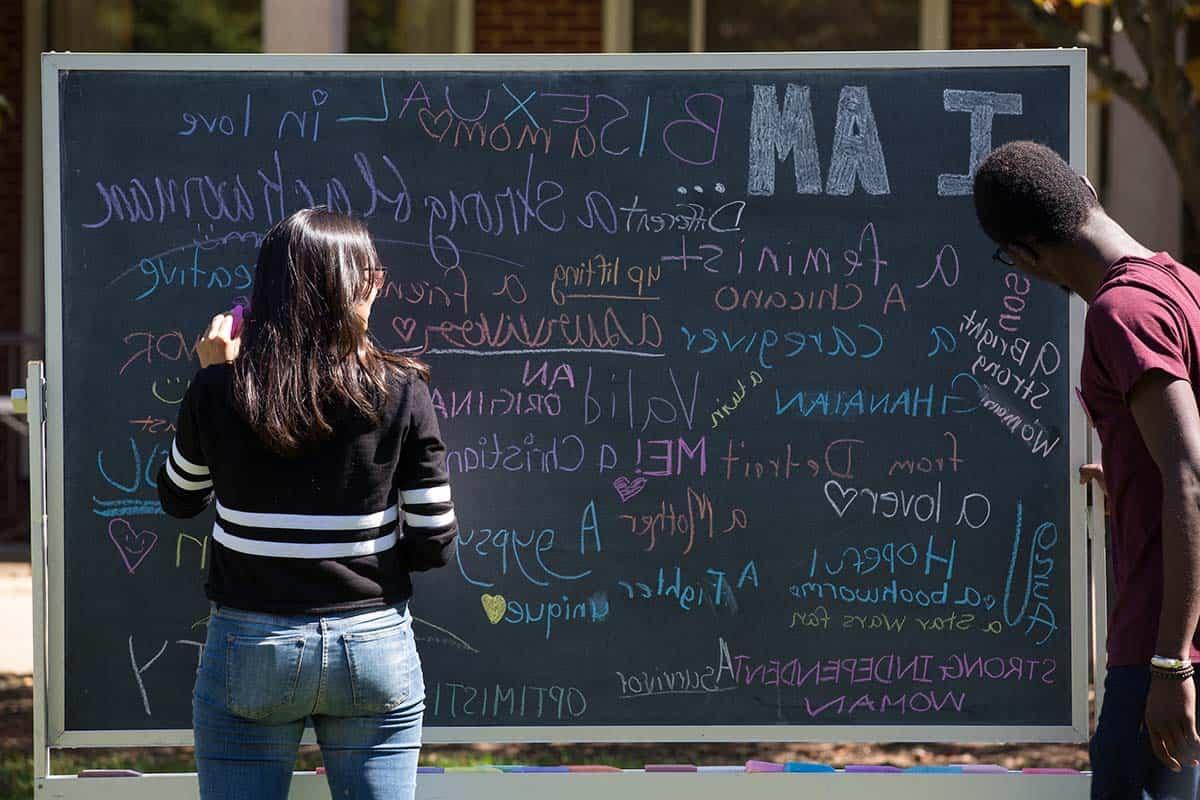 I AM ...
BISEXUAL
a mom
in love
Different
a strong black woman
a feminist
A Chicano
uplifting
a friend
creative
a caregiver
a survivor
a Bright
Strong
Woman
son
GHANAIAN
a twin
Valid
AN
ORIGINAL
from Detroit
ME!
a Christian
a lover
a Mother
A gypsy
Hopeful
a bookworm
a Star Wars fan
A Fighter
unique
STRONG INDEPENDENT
WOMAN
A survivor
OPTIMISTIC